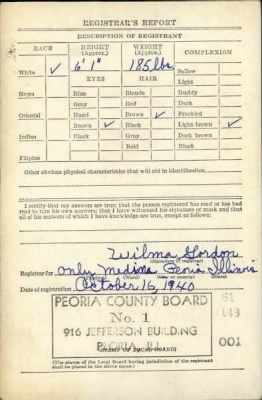 REGISTRAR'S REPORT
DESCRIPTION OF REGISTRANT
RACE HEIGHT (Approx.) WEIGHT (Approx.) COMPLEXION
White ✓ 6' 1" 185 lbs. Sallow
EYES HAIR Light
Negro Blue Blonde Ruddy
Gray Red Dark
Oriental Hazel Brown ✓ Freckled
Brown ✓ Black Light brown ✓
Indian Black Gray Dark brown
Bald Black
Filipino
Other obvious physical characteristics that will aid in identification
I certify that my answers are true; that the person registered has read or has had
read to him his own answers; that I have witnessed his signature or mark and that
all of his answers of which I have knowledge are true, except as follows:
Wilma Gordon
(Signature of registrar)
Registrar for Only Medina Peoria Illinois
Date of registration October 16, 1940
PEORIA COUNTY BOARD
No. 1
916 JEFFERSON BUILDING
PEORIA, ILL.
001
(STAMP OF LOCAL BOARD)
(The stamp of the Local Board having jurisdiction of the registrant
shall be placed in the above space.)